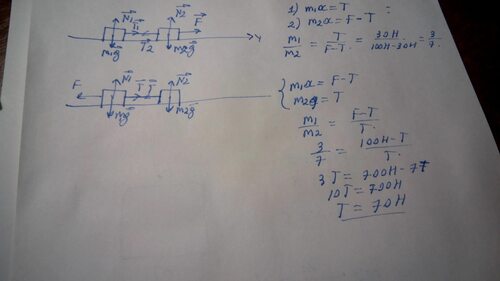 N1 T1 N2 F
T2 Y
m1g m2g
1) m1a = T :
2) m2a = F - T
m1/m2 = T/F-T = 30H/100H-30H = 3/7.
F N1 T T N2
m1g m2g
{ m1a = F - T
m2a = T
m1/m2 = F-T/T.
3/7 = 100H - T/T.
3T = 700H - 7T
10T = 700H
T = 70H